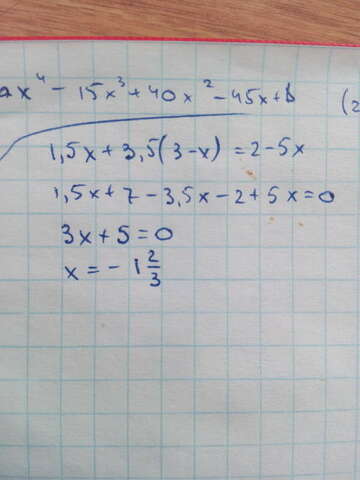 ax⁴ - 15x³ + 40x² - 45x + b (2
1,5x + 3,5(3-x) = 2 - 5x
1,5x + 7 - 3,5x - 2 + 5x = 0
3x + 5 = 0
x = - 1 2/3